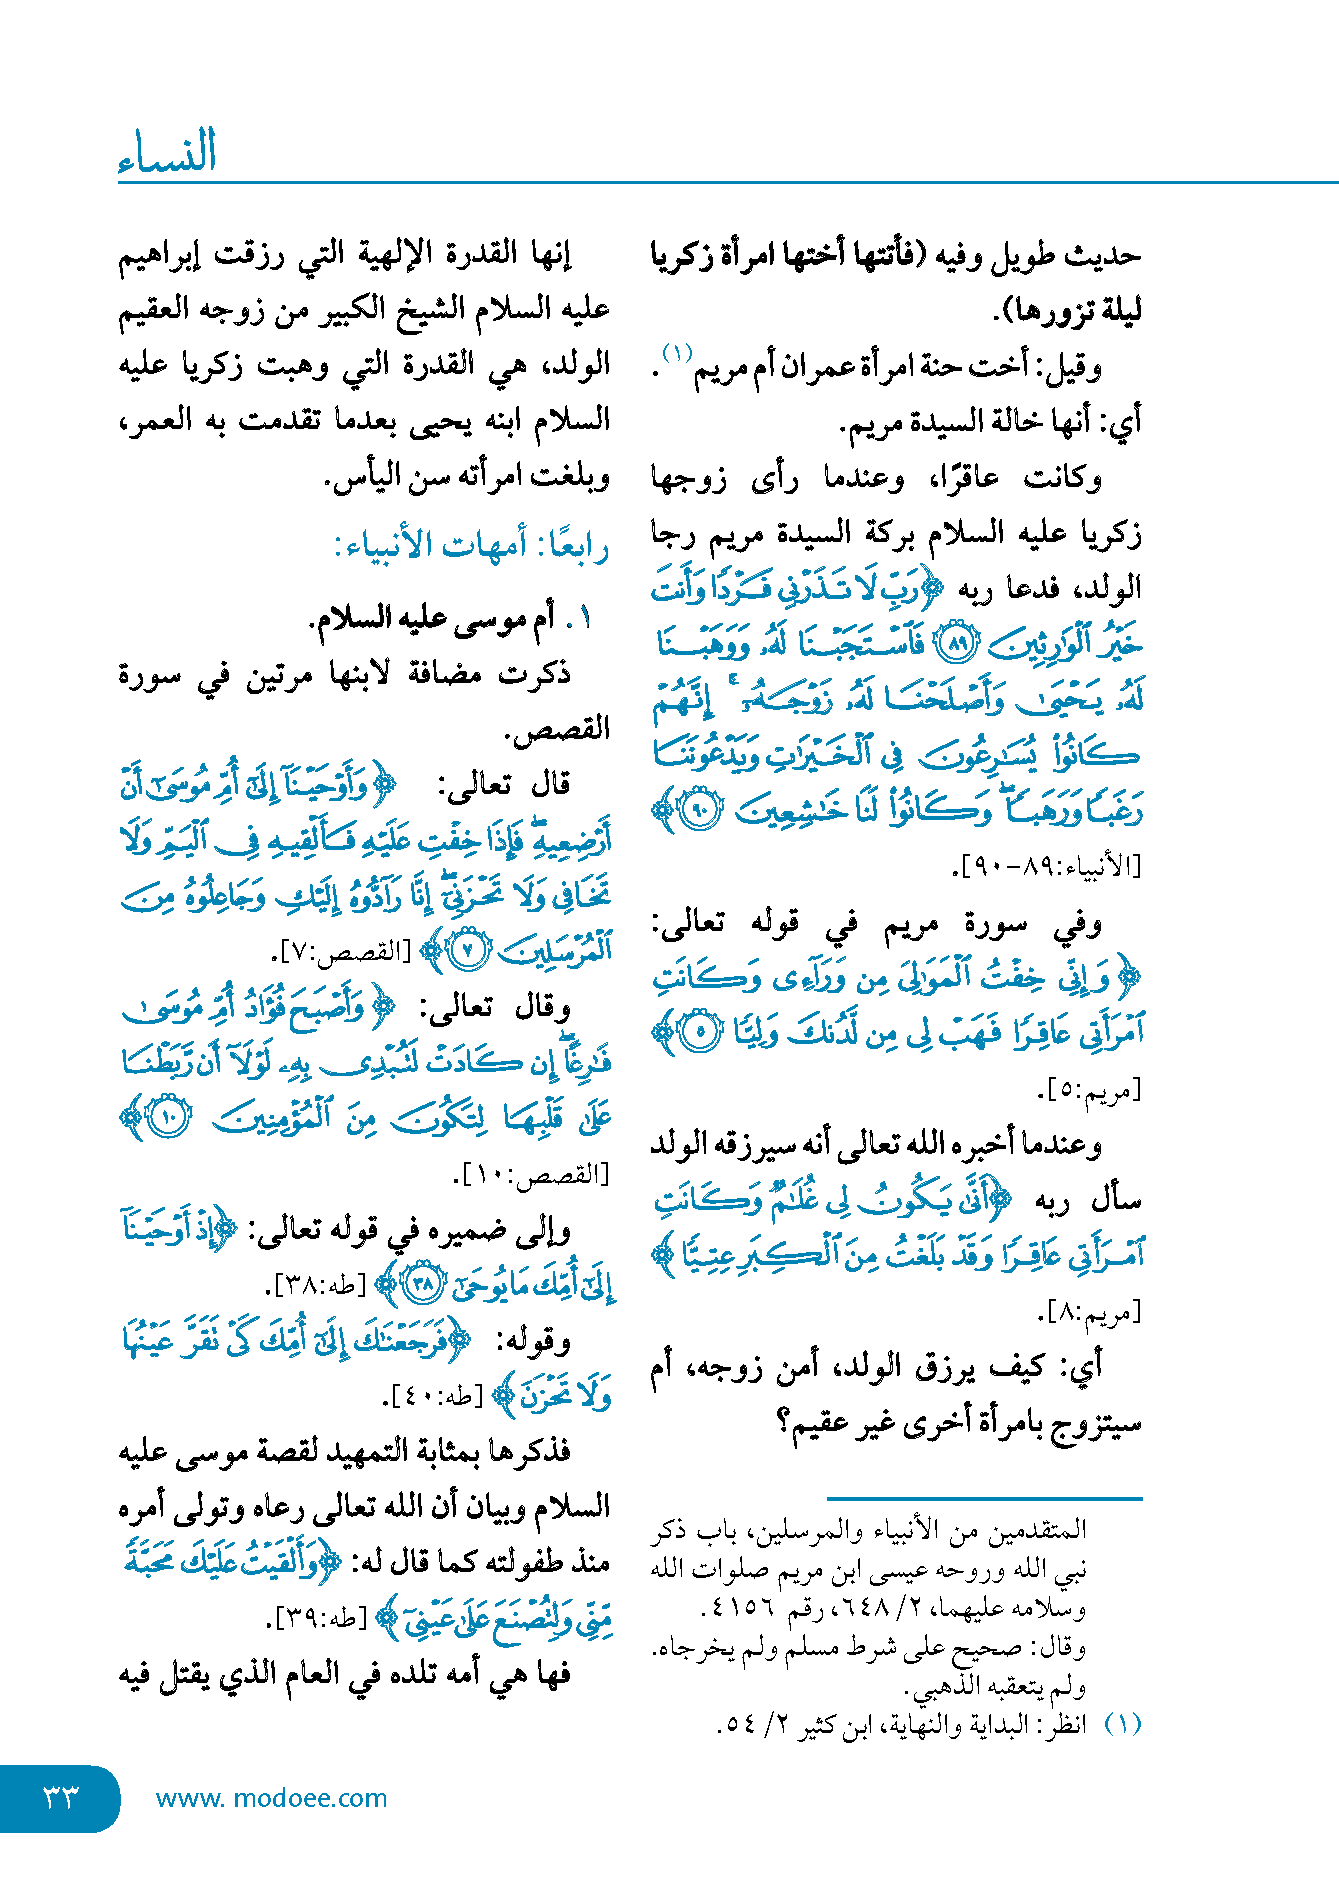 النساء
حديث طويل وفيه (فأتتها أختها امرأة زكريا
ليلة تزورها).
وقيل: أخت حنة امرأة عمران أم مريم(١).
أي: أنها خالة السيدة مريم.
وكانت عاقرًا، وعندما رأى زوجها
زكريا عليه السلام بركة السيدة مريم رجا
الولد، فدعا ربه ﴿رَبِّ لَا تَذَرْنِي فَرْدًا وَأَنتَ
خَيْرُ ٱلْوَٰرِثِينَ ۝٨٩ فَٱسْتَجَبْنَا لَهُۥ وَوَهَبْنَا
لَهُۥ يَحْيَىٰ وَأَصْلَحْنَا لَهُۥ زَوْجَهُۥٓ ۚ إِنَّهُمْ
كَانُوا۟ يُسَٰرِعُونَ فِي ٱلْخَيْرَٰتِ وَيَدْعُونَنَا
رَغَبًا وَرَهَبًا ۖ وَكَانُوا۟ لَنَا خَٰشِعِينَ ۝٩٠﴾
[الأنبياء:٨٩-٩٠].
وفي سورة مريم في قوله تعالى:
﴿وَإِنِّي خِفْتُ ٱلْمَوَٰلِيَ مِن وَرَآءِى وَكَانَتِ
ٱمْرَأَتِي عَاقِرًا فَهَبْ لِي مِن لَّدُنكَ وَلِيًّا ۝٥﴾
[مريم:٥].
وعندما أخبره الله تعالى أنه سيرزقه الولد
سأل ربه ﴿أَنَّىٰ يَكُونُ لِي غُلَٰمٌ وَكَانَتِ
ٱمْرَأَتِي عَاقِرًا وَقَدْ بَلَغْتُ مِنَ ٱلْكِبَرِ عِتِيًّا﴾
[مريم:٨].
أي: كيف يرزق الولد، أمن زوجه، أم
سيتزوج بامرأة أخرى غير عقيم؟
المتقدمين من الأنبياء والمرسلين، باب ذكر
نبي الله وروحه عيسى ابن مريم صلوات الله
وسلامه عليهما، ٢/ ٦٤٨، رقم ٤١٥٦.
وقال: صحيح على شرط مسلم ولم يخرجاه.
ولم يتعقبه الذهبي.
(١) انظر: البداية والنهاية، ابن كثير ٢/ ٥٤.
إنها القدرة الإلهية التي رزقت إبراهيم
عليه السلام الشيخ الكبير من زوجه العقيم
الولد، هي القدرة التي وهبت زكريا عليه
السلام ابنه يحيى بعدما تقدمت به العمر،
وبلغت امرأته سن اليأس.
رابعًا: أمهات الأنبياء:
١. أم موسى عليه السلام.
ذكرت مضافة لابنها مرتين في سورة
القصص.
قال تعالى: ﴿وَأَوْحَيْنَآ إِلَىٰٓ أُمِّ مُوسَىٰٓ أَنْ
أَرْضِعِيهِ ۖ فَإِذَا خِفْتِ عَلَيْهِ فَأَلْقِيهِ فِى ٱلْيَمِّ وَلَا
تَخَافِي وَلَا تَحْزَنِىٓ ۖ إِنَّا رَآدُّوهُ إِلَيْكِ وَجَاعِلُوهُ مِنَ
ٱلْمُرْسَلِينَ ۝٧﴾ [القصص:٧].
وقال تعالى: ﴿وَأَصْبَحَ فُؤَادُ أُمِّ مُوسَىٰ
فَٰرِغًا ۖ إِن كَادَتْ لَتُبْدِى بِهِۦ لَوْلَآ أَن رَّبَطْنَا
عَلَىٰ قَلْبِهَا لِتَكُونَ مِنَ ٱلْمُؤْمِنِينَ ۝١٠﴾
[القصص:١٠].
وإلى ضميره في قوله تعالى: ﴿إِذْ أَوْحَيْنَآ
إِلَىٰٓ أُمِّكَ مَا يُوحَىٰٓ ۝٣٨﴾ [طه:٣٨].
وقوله: ﴿فَرَجَعْنَٰكَ إِلَىٰٓ أُمِّكَ كَىْ تَقَرَّ عَيْنُهَا
وَلَا تَحْزَنَ﴾ [طه:٤٠].
فذكرها بمثابة التمهيد لقصة موسى عليه
السلام وبيان أن الله تعالى رعاه وتولى أمره
منذ طفولته كما قال له: ﴿وَأَلْقَيْتُ عَلَيْكَ مَحَبَّةً
مِّنِّي وَلِتُصْنَعَ عَلَىٰ عَيْنِىٓ﴾ [طه:٣٩].
فها هي أمه تلده في العام الذي يقتل فيه
٣٣
www. modoee.com